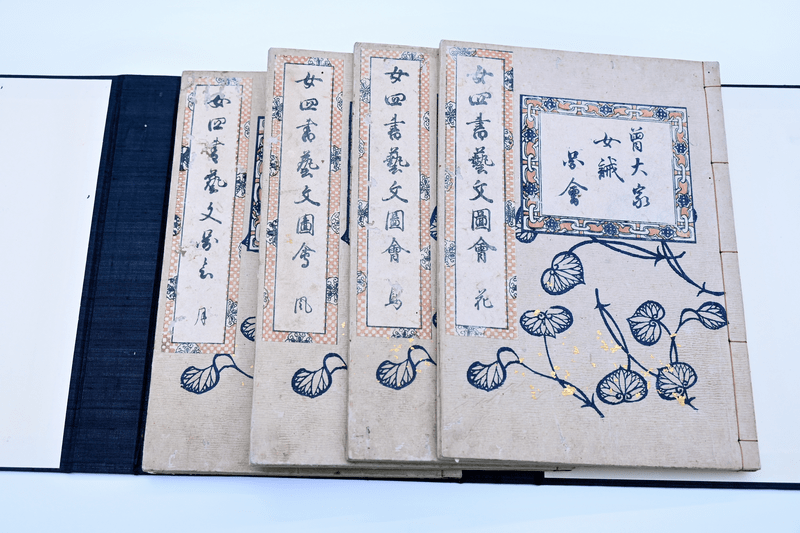 曾大家
女誡
啚會
女四書藝文圖會 花
女四書藝文圖會 鳥
女四書藝文圖會 風
女四書藝文啚会 月